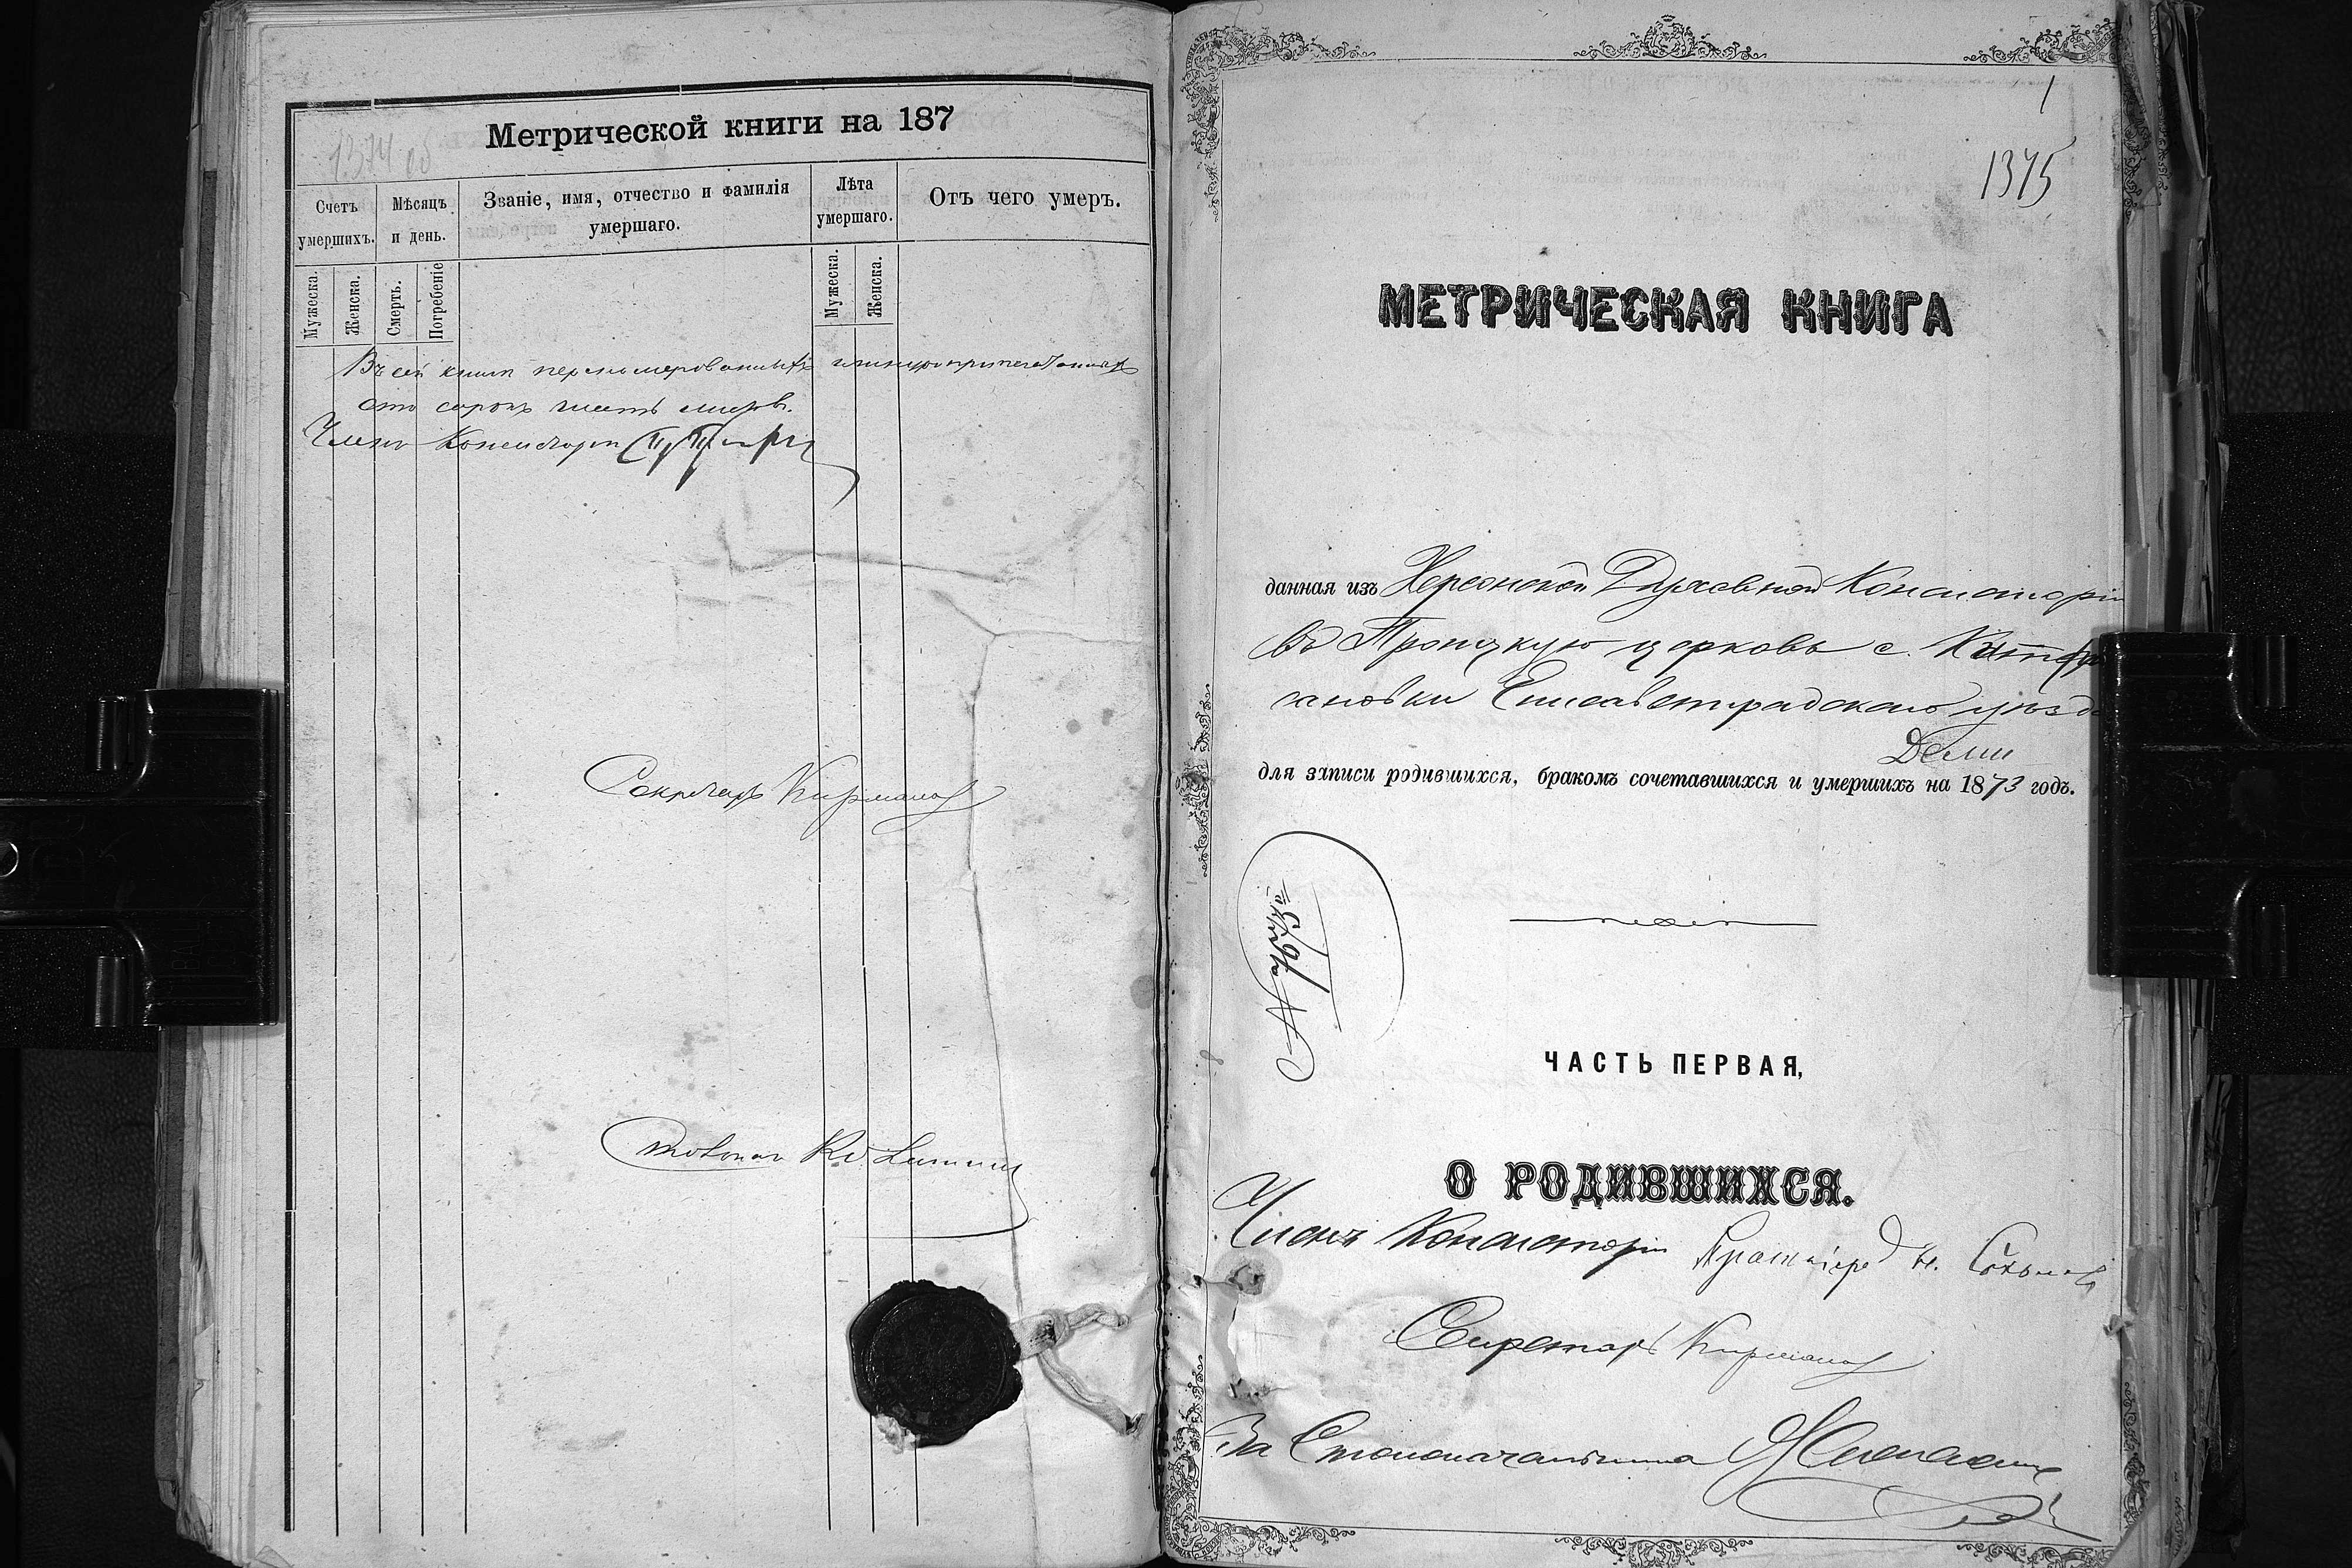 1374 об
Метрической книги на 187
Счетъ умершихъ.
Мѣсяцъ и день.
Званіе, имя, отчество и фамилія умершаго.
Лѣта умершаго.
Отъ чего умеръ.
Мужеска.
Женска.
Смерть.
Погребеніе
Мужеска.
Женска.
Въ сей книгѣ перенумерованныхъ
сто сорокъ шесть листовъ.
Членъ Консисторіи
Секретарь
1
1375
МЕТРИЧЕСКАЯ КНИГА
данная изъ Херсонской Духовной Консисторіи
въ Троицкую церковь с.
Елисаветградскаго уѣзда
для записи родившихся, бракомъ сочетавшихся и умершихъ на 1873 годъ.
ЧАСТЬ ПЕРВАЯ,
О РОДИВШИХСЯ.
Членъ Консисторіи Протоіерей
Секретарь
За Столоначальника